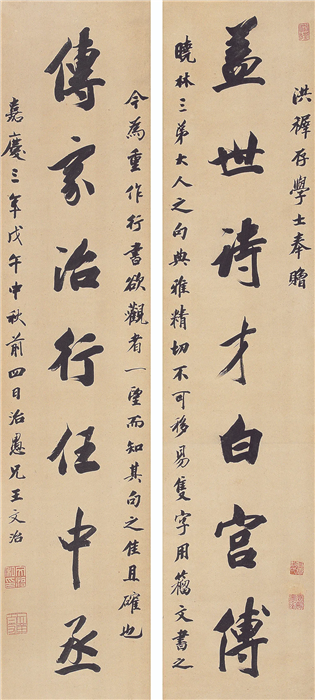 洪稺存學士奉贈
蓋世詩才白宮傅
曉林三弟大人之句典雅精切不可移易隻字用籀文書之
今為重作行書欲觀者一望而知其句之佳且確也
傳家治行任中丞
嘉慶三年戊午中秋前四日治愚兄王文治